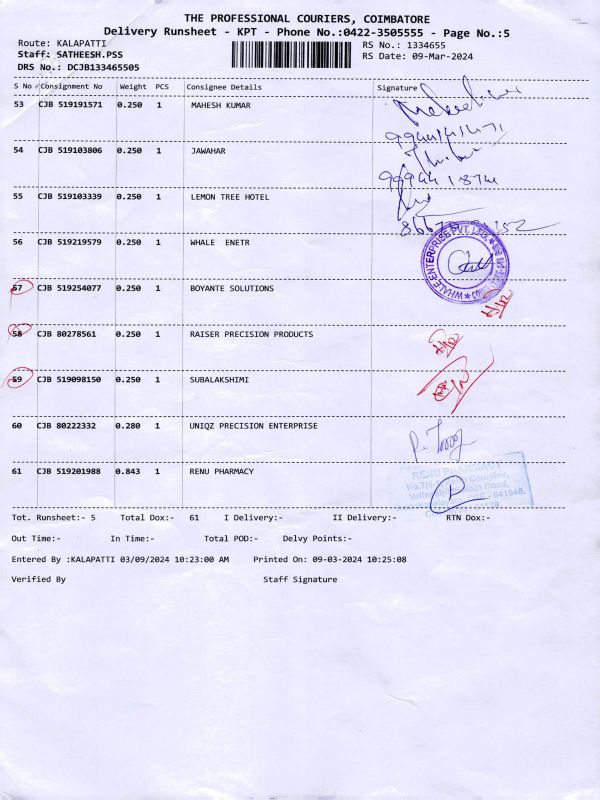 THE PROFESSIONAL COURIERS, COIMBATORE
Delivery Runsheet - KPT - Phone No.:0422-3505555 - Page No.:5
Route: KALAPATTI RS No.: 1334655
Staff: SATHEESH.PSS RS Date: 09-Mar-2024
DRS No.: DCJB133465505
S No Consignment No Weight PCS Consignee Details Signature
53 CJB 519191571 0.250 1 MAHESH KUMAR
54 CJB 519103806 0.250 1 JAWAHAR
55 CJB 519103339 0.250 1 LEMON TREE HOTEL
56 CJB 519219579 0.250 1 WHALE ENETR
WHALE ENTERPRISE PVT. LTD.
57 CJB 519254077 0.250 1 BOYANTE SOLUTIONS
58 CJB 80278561 0.250 1 RAISER PRECISION PRODUCTS
59 CJB 519098150 0.250 1 SUBALAKSHIMI
60 CJB 80222332 0.280 1 UNIQZ PRECISION ENTERPRISE
61 CJB 519201988 0.843 1 RENU PHARMACY
RENU PHARMACY
Complex,
Main Road,
- 641048.
Tot. Runsheet:- 5 Total Dox:- 61 I Delivery:- II Delivery:- RTN Dox:-
Out Time:- In Time:- Total POD:- Delvy Points:-
Entered By :KALAPATTI 03/09/2024 10:23:00 AM Printed On: 09-03-2024 10:25:08
Verified By Staff Signature